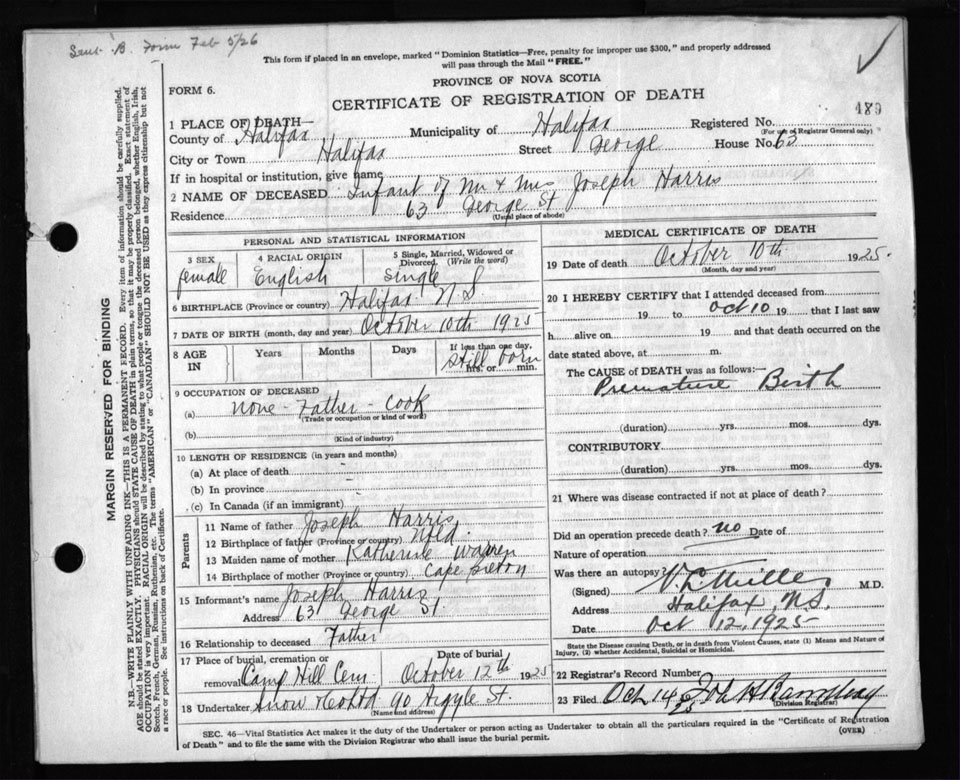 Sent B. Form Feb 5/26
This form if placed in an envelope, marked "Dominion Statistics—Free, penalty for improper use $300," and properly addressed
will pass through the Mail "FREE."
PROVINCE OF NOVA SCOTIA
FORM 6.
CERTIFICATE OF REGISTRATION OF DEATH
489
1 PLACE OF DEATH—
County of Halifax Municipality of Halifax Registered No.
(For use of Registrar General only)
City or Town Halifax Street George House No. 63
If in hospital or institution, give name
2 NAME OF DECEASED Infant of Mr & Mrs Joseph Harris
Residence 63 George St
(Usual place of abode)
PERSONAL AND STATISTICAL INFORMATION
3 SEX 4 RACIAL ORIGIN 5 Single, Married, Widowed or Divorced. (Write the word)
female English Single S
6 BIRTHPLACE (Province or country) Halifax N S
7 DATE OF BIRTH (month, day and year) October 10th 1925
8 AGE IN Years Months Days If less than one day, hrs. or min.
Still born
9 OCCUPATION OF DECEASED
(a) none - Father - Cook
(Trade or occupation or kind of work)
(b)
(Kind of industry)
10 LENGTH OF RESIDENCE (in years and months)
(a) At place of death
(b) In province
(c) In Canada (if an immigrant)
Parents
11 Name of father Joseph Harris
12 Birthplace of father (Province or country) Nfld.
13 Maiden name of mother Katherine Warren
14 Birthplace of mother (Province or country) Cape Breton
15 Informant's name Joseph Harris
Address 63 George St.
16 Relationship to deceased Father
17 Place of burial, cremation or removal Date of burial
Camp Hill Cem October 12th 1925
18 Undertaker Snow & Co Ltd 90 Argyle St.
(Name and address)
MEDICAL CERTIFICATE OF DEATH
19 Date of death October 10th 1925.
(Month, day and year)
20 I HEREBY CERTIFY that I attended deceased from
19 to Oct 10 19 that I last saw
h alive on 19 and that death occurred on the
date stated above, at m.
The CAUSE of DEATH was as follows:—
Premature Birth
(duration) yrs. mos. dys.
CONTRIBUTORY
(duration) yrs. mos. dys.
21 Where was disease contracted if not at place of death?
Did an operation precede death? no Date of
Nature of operation
Was there an autopsy?
(Signed) Miller M.D.
Address Halifax, N.S.
Date Oct 12, 1925
State the Disease causing Death, or in death from Violent Causes, state (1) Means and Nature of
Injury, (2) whether Accidental, Suicidal or Homicidal.
22 Registrar's Record Number
23 Filed Oct 14 25
(Division Registrar)
SEC. 46—Vital Statistics Act makes it the duty of the Undertaker or person acting as Undertaker to obtain all the particulars required in the "Certificate of Registration
of Death" and to file the same with the Division Registrar who shall issue the burial permit.
(OVER)
MARGIN RESERVED FOR BINDING
N.B.—WRITE PLAINLY WITH UNFADING INK—THIS IS A PERMANENT RECORD. Every item of information should be carefully supplied.
AGE should be stated EXACTLY. PHYSICIANS should STATE CAUSE OF DEATH in plain terms, so that it may be properly classified. Exact statement of
OCCUPATION is very important. RACIAL ORIGIN will be described by stating to what people or tongue the deceased person belonged, whether English, Irish,
Scotch, French, German, Russian, Ruthenian, etc. The terms "AMERICAN" or "CANADIAN" SHOULD NOT BE USED as they express citizenship but not
a race or people. See instructions on back of Certificate.